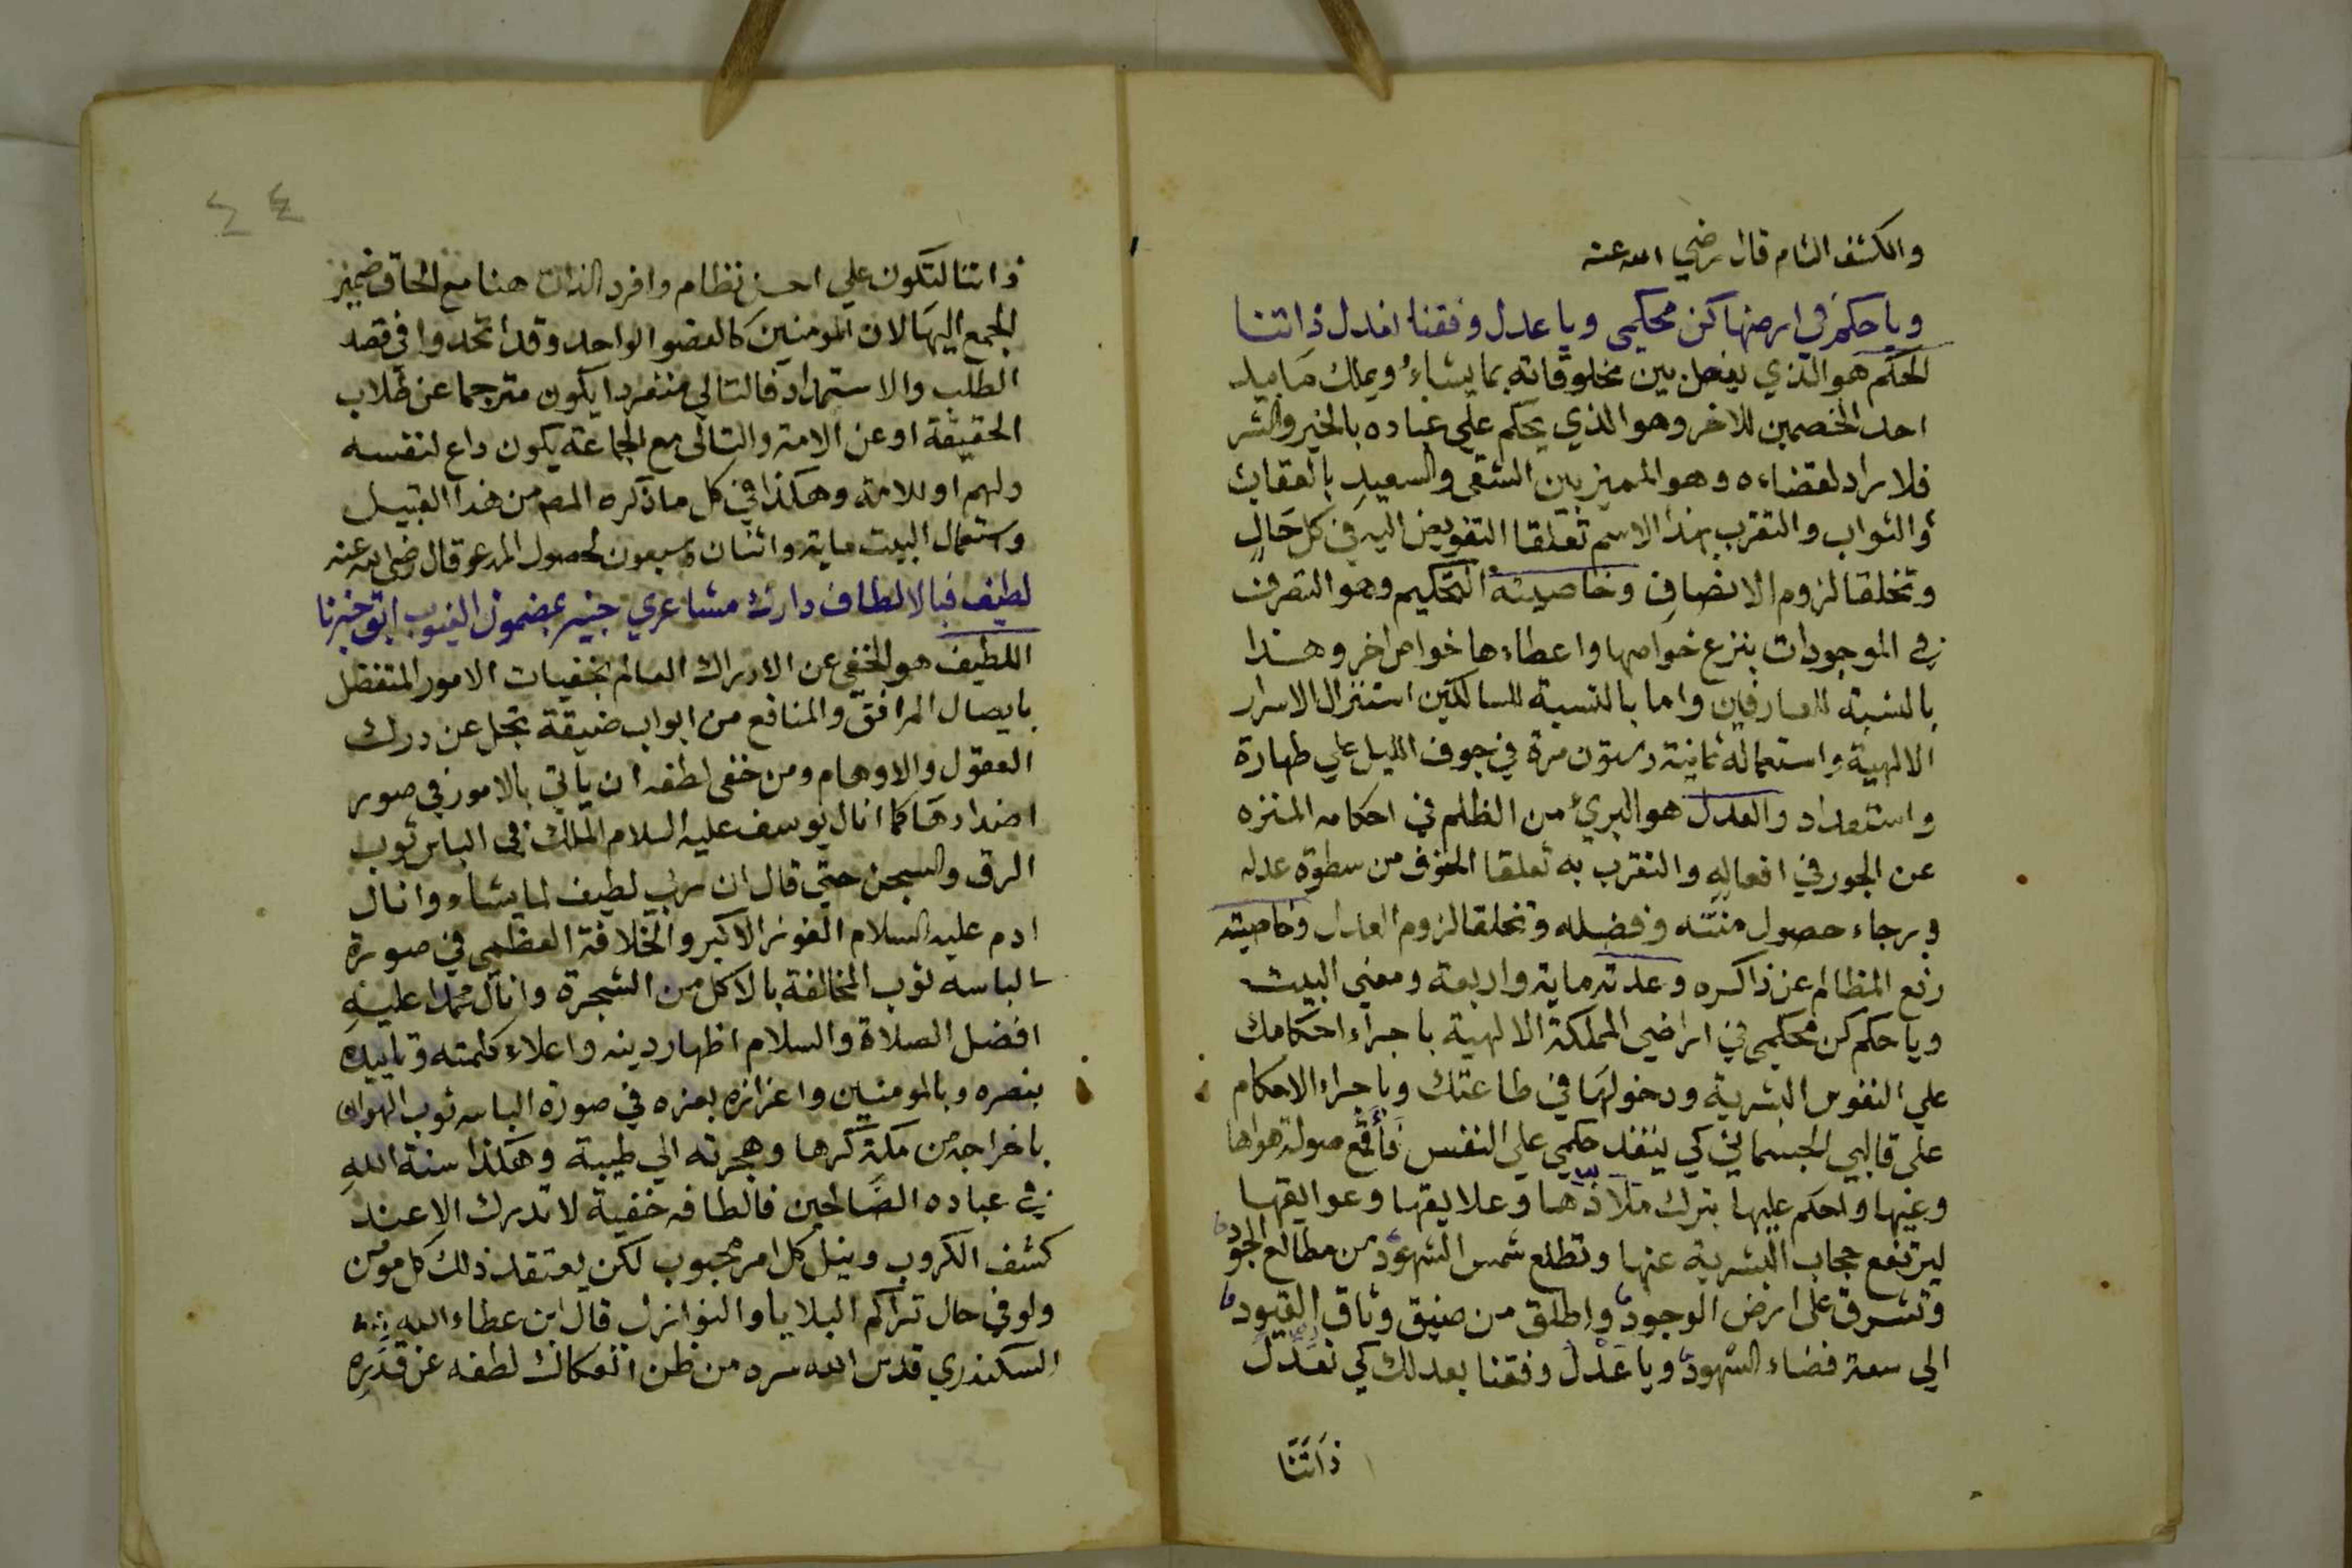 والكشف التام قال رضي الله عنه
ويا حكم في ارضها كن محكمي ويا عدل وفقنا لنعدل ذاتنا
الحكم هو الذي يفصل بين مخلوقاته بما يشاء ويملك مابيد
احد الخصمين للاخر وهو الذي يحكم على عباده بالخير والشر
فلا راد لقضاءه وهو المميز بين الشقى والسعيد بالعقاب
والثواب والتقرب بهذا الاسم تعلقا التفويض اليه في كل حال
وتخلقا لزوم الانصاف وخاصيته التحكيم وهو التصرف
في الموجودات بنزع خواصها واعطاءها خواص اخر وهذا
بالنسبة للعارفين واما بالنسبة للسالكين استنزال الاسرار
الالهية واستعماله ثمانية وستون مرة في جوف الليل علي طهارة
واستعداد والعدل هو البريء من الظلم في احكامه المنزه
عن الجور في افعاله والتقرب به تعلقا الخوف من سطوة عدله
وبرجاء حصول منته وفضله وتخلقا لزوم العدل وخاصيته
رفع المظالم عن ذاكره وعدته ماية واربعة ومعني البيت
ويا حكم كن محكمي في اراضي المملكة الالهية باجراء احكامك
علي النفوس البشرية ودخولها في طاعتك وباجراء الاحكام
على قالبي الجسماني كي ينفذ حكمي علي النفس فأقمع صولة هواها
وغيها واحكم عليها بترك ملاذها وعلايقها وعوايقها
ليرتفع حجاب البشرية عنها وتطلع شمس الشهود من مطالع الجود
وتشرق على ارض الوجود واطلق من ضيق وثاق القيود
الي سعة فضاء الشهود ويا عدل وفقنا بعدلك كي نعدل
ذاتنا
٤٤
ذاتنا لتكون علي احسن نظام وافرد الذات هنا مع الحاق ضمير
الجمع اليها لان المومنين كالعضو الواحد وقد اتحدوا في قصد
الطلب والاستمداد فالتالي منفردا يكون مترجما عن طلاب
الحقيقة او عن الامة والتالى مع الجماعة يكون داع لنفسه
ولهم او للامة وهكذا في كل ما ذكره المص من هذا القبيل
واستعمال البيت ماية واثنان وسبعون لحصول المدعو قال رضي الله عنه
لطيف فبالالطاف دارك مشاعري خبير بمضمون الغيوب خبرنا
اللطيف هو الخفي عن الادراك العالم بخفيات الامور المتفضل
بايصال المرافق والمنافع من ابواب ضيقة تجل عن درك
العقول والاوهام ومن خفى لطفه ان ياتي بالامور في صور
اضدادها كما انال يوسف عليه السلام الملك في الباس ثوب
الرق والسجن حتي قال ان ربي لطيف لما يشاء وانال
ادم عليه السلام الفوز الاكبر والخلافة العظمي في صورة
الباسه ثوب المخالفة بالاكل من الشجرة وانال محمدا عليه
افضل الصلاة والسلام اظهار دينه واعلاء كلمته وتاييده
بنصره وبالمومنين واعزازه بعزه في صورة الباسه ثوب الهوان
باخراجه من مكة كرها وهجرته الي طيبة وهكذا سنة الله
في عباده الصالحين فالطافه خفية لا تدرك الا عند
كشف الكروب ونيل كل امر محبوب لكن يعتقد ذلك كل مومن
ولو في حال تراكم البلايا والنوازل قال ابن عطاء الله
السكندري قدس الله سره من ظن انفكاك لطفه عن قدره